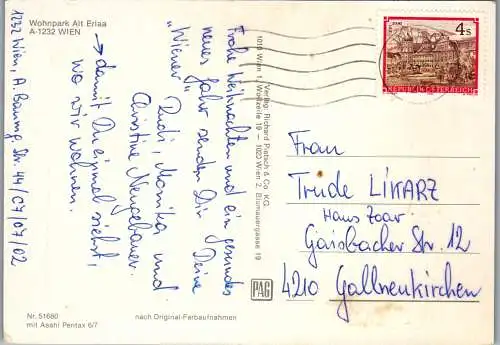 Wohnpark Alt Erlaa
A-1232 WIEN
Frohe Weihnachten und ein gesundes
neues Jahr senden Dir Deine
"Wiener" Rudi, Monika und
Christine Neugebauer.
→ damit Du einmal siehst,
wo wir wohnen.
1232 Wien, A. Baumg. Str. 44/C7/07/02
Verlag: Richard Pietsch & Co. KG.
1010 Wien 1, Wollzeile 19 — 1020 Wien 2, Blumauergasse 19
PAG
Nr. 51680
mit Asahi Pentax 6/7
nach Original-Farbaufnahmen
4 S
REPUBLIK ÖSTERREICH
Frau
Trude LIKARZ
Haus Zoar
Gaisbacher Str. 12
4210 Gallneukirchen